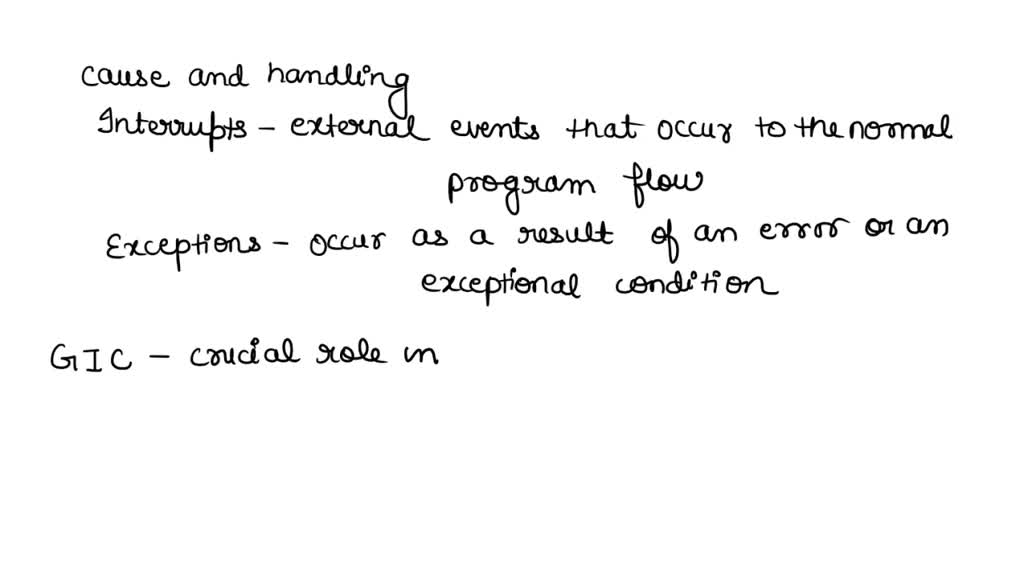 cause and handling
Interrupts - external events that occur to the normal
program flow
Exceptions - occur as a result of an error or an
exceptional condition
GIC - crucial role in